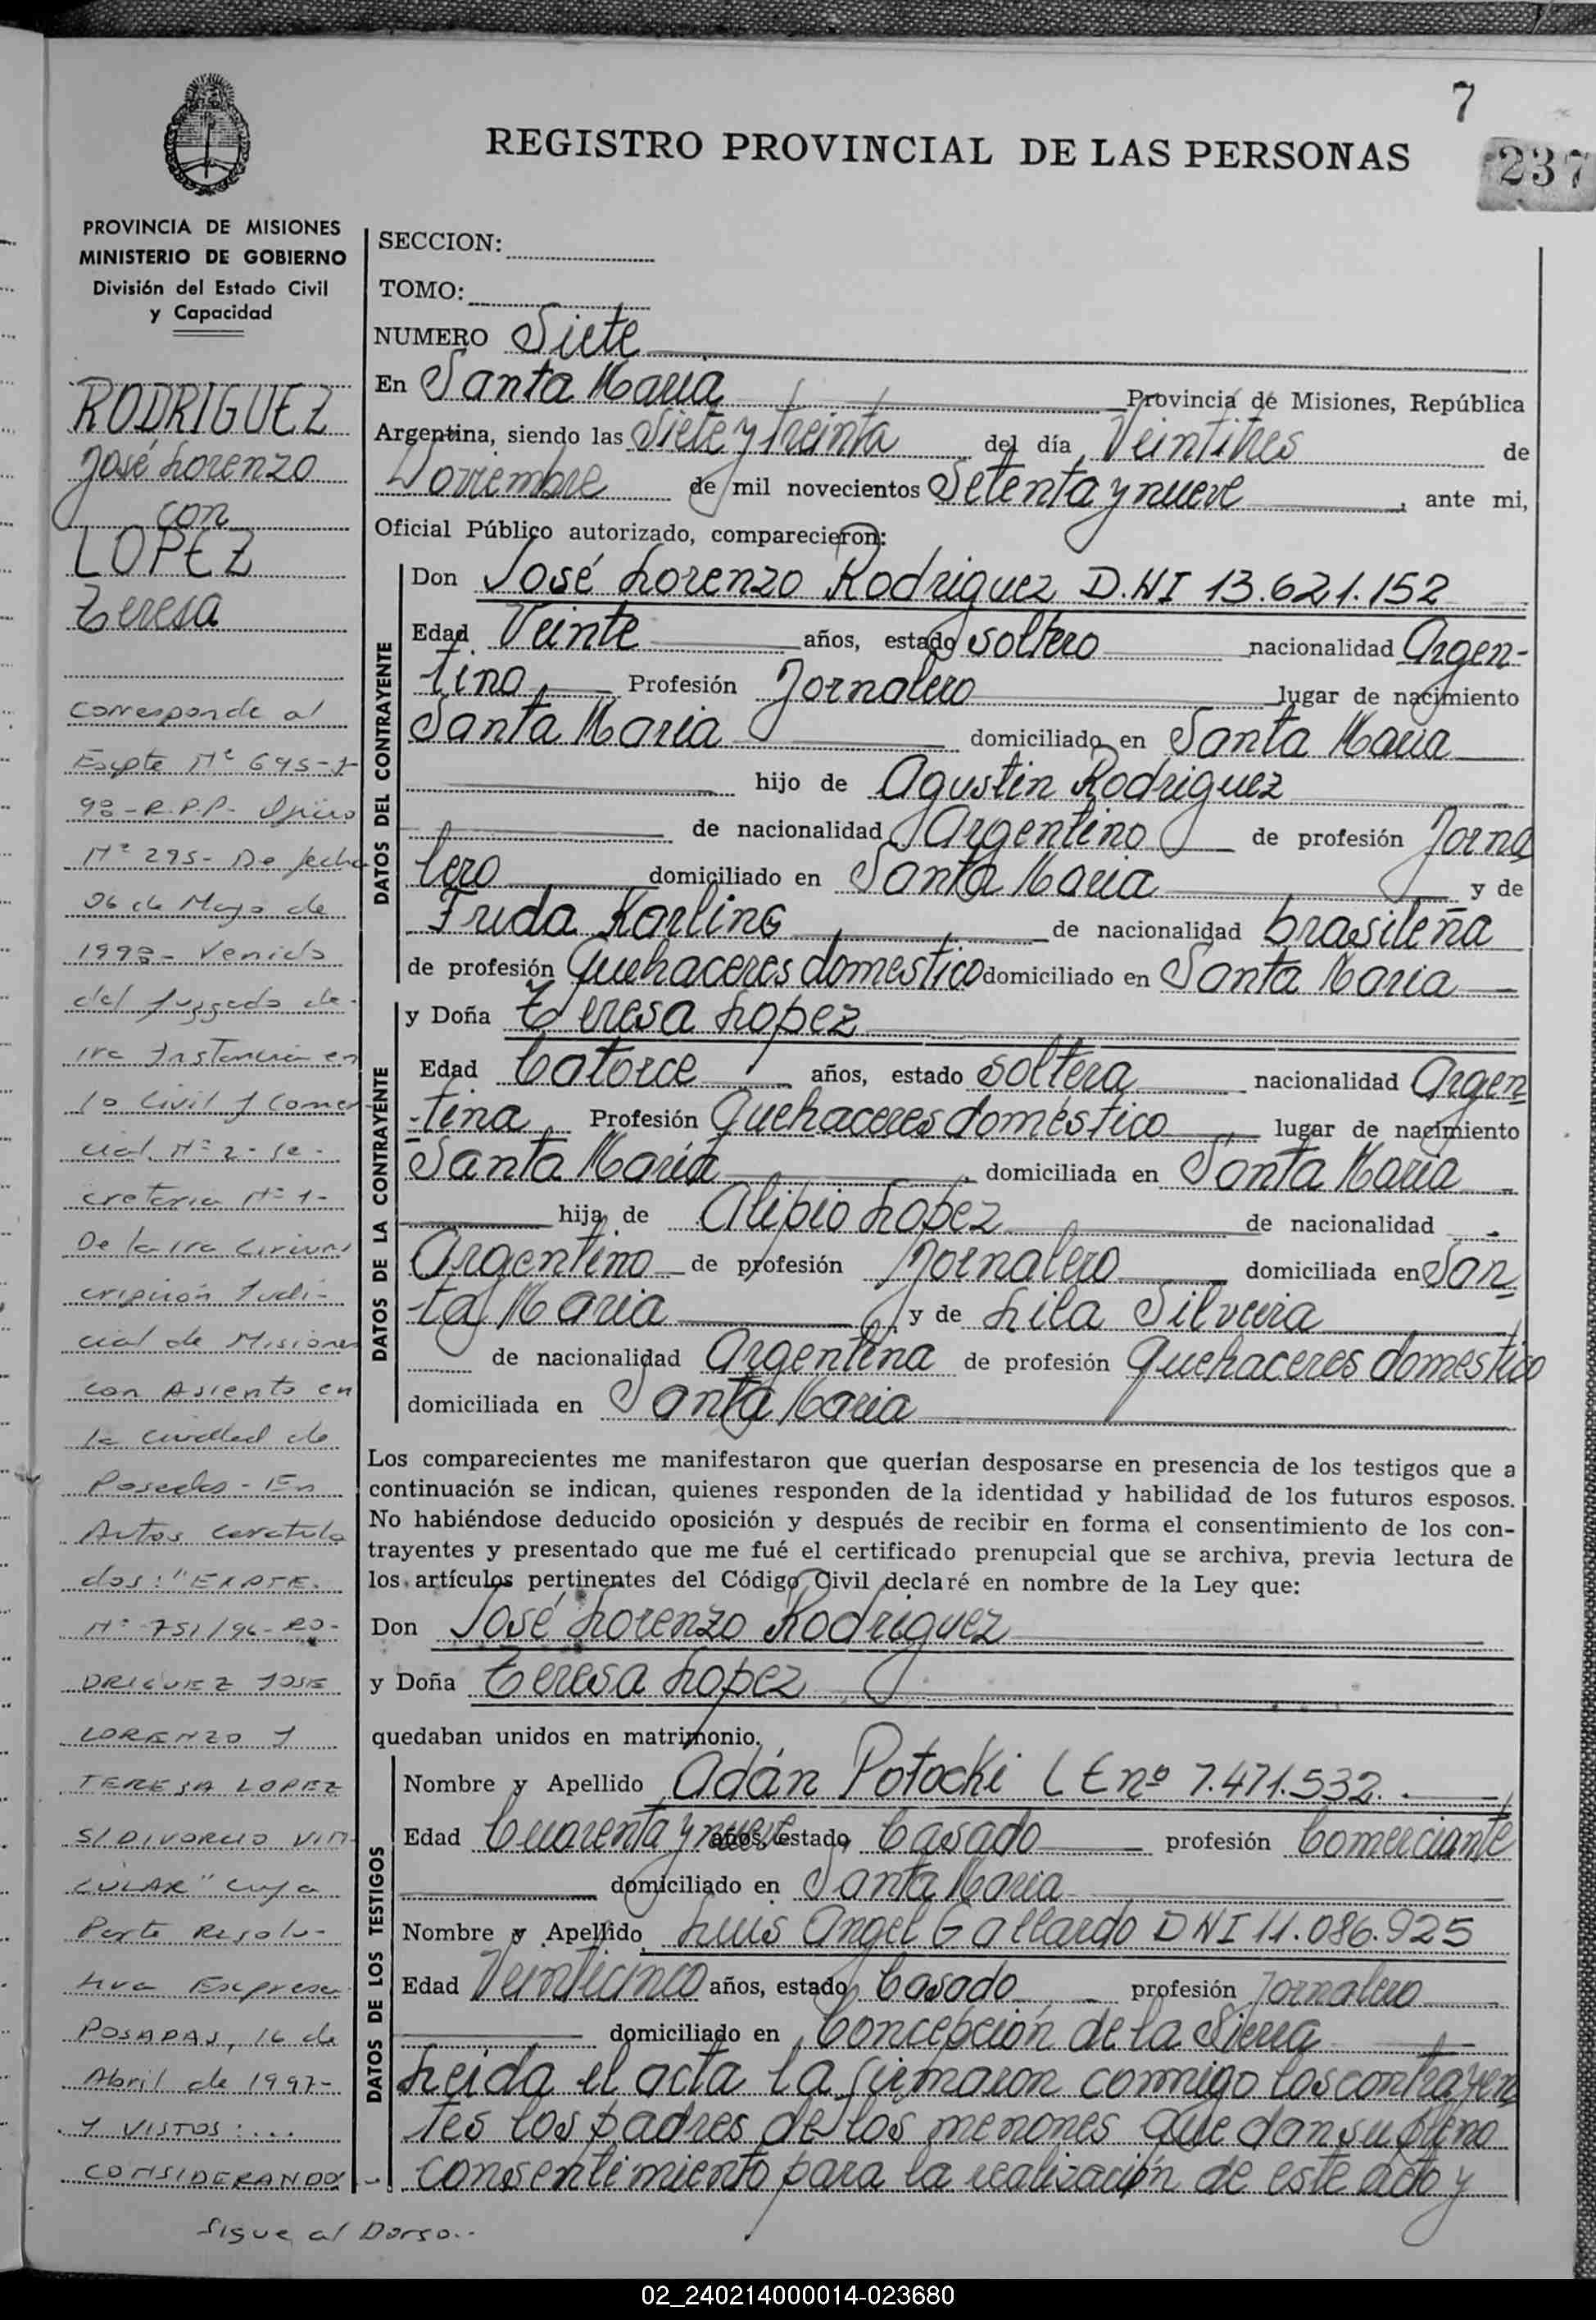 7
REGISTRO PROVINCIAL DE LAS PERSONAS
237
PROVINCIA DE MISIONES
MINISTERIO DE GOBIERNO
División del Estado Civil
y Capacidad
RODRIGUEZ
José Lorenzo
con
LOPEZ
Teresa
Corresponde al
Expte Nº 695-
98-R.P.P- Oficio
Nº 295- De fecha
06 de Mayo de
1998- Venido
del Juzgado de
1ra Instancia en
lo Civil y Comer
cial Nº 2- Se-
cretaria Nº 1-
De la 1ra Circuns
cripción Judi-
cial de Misiones
con Asiento en
la ciudad de
Posadas - En
Autos caratula
dos: "EXPTE.
Nº 751/96- RO-
DRIGUEZ JOSE
LORENZO Y
TERESA LOPEZ
S/ DIVORCIO VIN
CULAR" cuya
Parte Resolu-
tiva Expresa
POSADAS, 16 de
Abril de 1997-
Y VISTOS: ...
CONSIDERANDO
Sigue al Dorso..
SECCION:
TOMO:
NUMERO Siete
En Santa Maria Provincia de Misiones, República
Argentina, siendo las Siete y treinta del día Veintitres de
Noviembre de mil novecientos Setenta y nueve, ante mi,
Oficial Público autorizado, comparecieron:
DATOS DEL CONTRAYENTE
Don José Lorenzo Rodriguez D.NI 13.621.152
Edad Veinte años, estado soltero nacionalidad Argen-
tino Profesión Jornalero lugar de nacimiento
Santa Maria domiciliado en Santa Maria
hijo de Agustin Rodriguez
de nacionalidad Argentino de profesión Jorna
lero domiciliado en Santa Maria y de
Frida Karling de nacionalidad brasileña
de profesión Quehaceres domestico domiciliado en Santa Maria
DATOS DE LA CONTRAYENTE
y Doña Teresa Lopez
Edad Catorce años, estado soltera nacionalidad Argen
-tina Profesión Quehaceres doméstico lugar de nacimiento
Santa Maria domiciliada en Santa Maria
hija de Alipio Lopez de nacionalidad
Argentino de profesión Jornalero domiciliada en San
ta Maria y de Lila Silveira
de nacionalidad Argentina de profesión Quehaceres domestico
domiciliada en Santa Maria
Los comparecientes me manifestaron que querían desposarse en presencia de los testigos que a
continuación se indican, quienes responden de la identidad y habilidad de los futuros esposos.
No habiéndose deducido oposición y después de recibir en forma el consentimiento de los con-
trayentes y presentado que me fué el certificado prenupcial que se archiva, previa lectura de
los artículos pertinentes del Código Civil declaré en nombre de la Ley que:
Don José Lorenzo Rodriguez
y Doña Teresa Lopez
quedaban unidos en matrimonio.
DATOS DE LOS TESTIGOS
Nombre y Apellido Adán Potocki LE nº 7.471.532.
Edad Cuarenta y nueve años, estado Casado profesión Comerciante
domiciliado en Santa Maria
Nombre y Apellido Luis Angel Gallardo DNI 11.086.925
Edad Veinticinco años, estado Casado profesión Jornalero
domiciliado en Concepción de la Sierra
Leida el acta la firmaron conmigo los contrayen
tes los padres de los menores que dan su pleno
consentimiento para la realización de este acto y
02_240214000014-023680